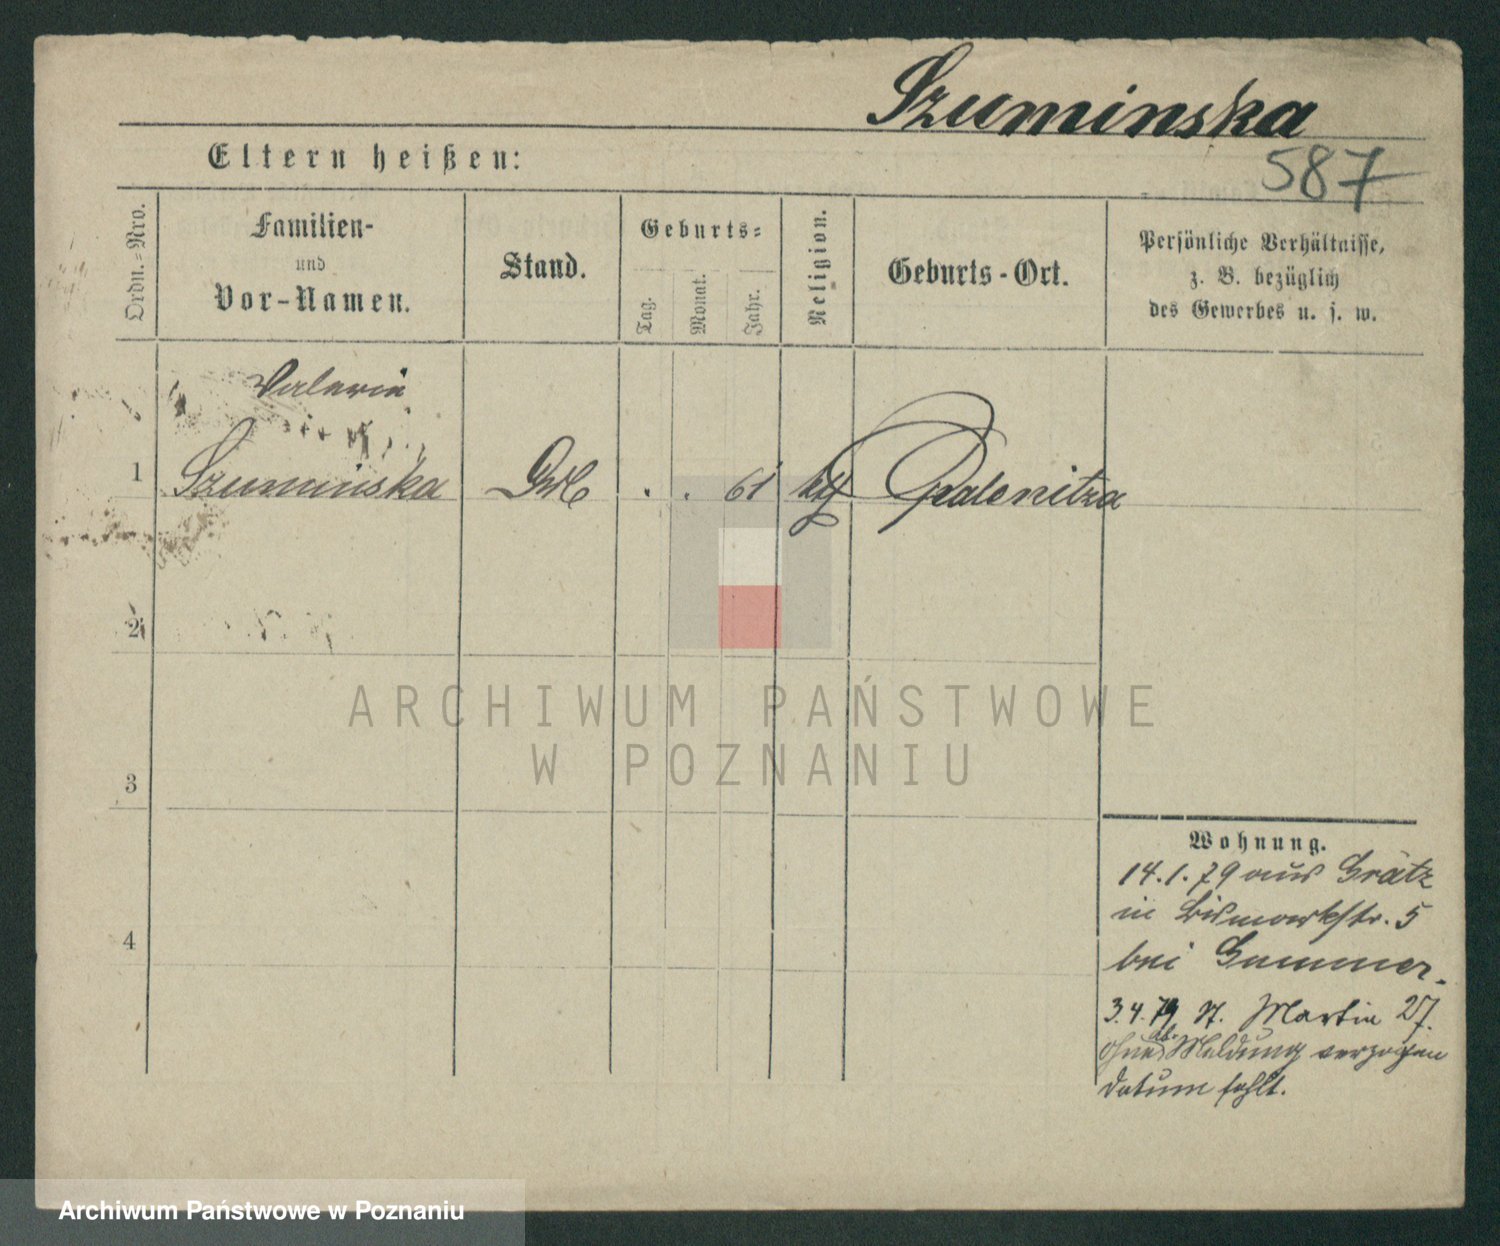 Szuminska
587
Eltern heißen:
Ordn.=Nro.
Familien-
und
Vor-Namen.
Stand.
Geburts=
Tag.
Monat.
Jahr.
Religion.
Geburts-Ort.
Persönliche Verhältnisse,
z. B. bezüglich
des Gewerbes u. s. w.
Valerie
1 Szuminska . . 61 kth
2
3
4
Wohnung.
14.1.79 aus Grätz
in Bismarkstr. 5
bei Gummer.
3.4.79 St. Martin 27.
ohne Ab-Meldung verzogen
Datum fehlt.
ARCHIWUM PAŃSTWOWE
W POZNANIU
Archiwum Państwowe w Poznaniu